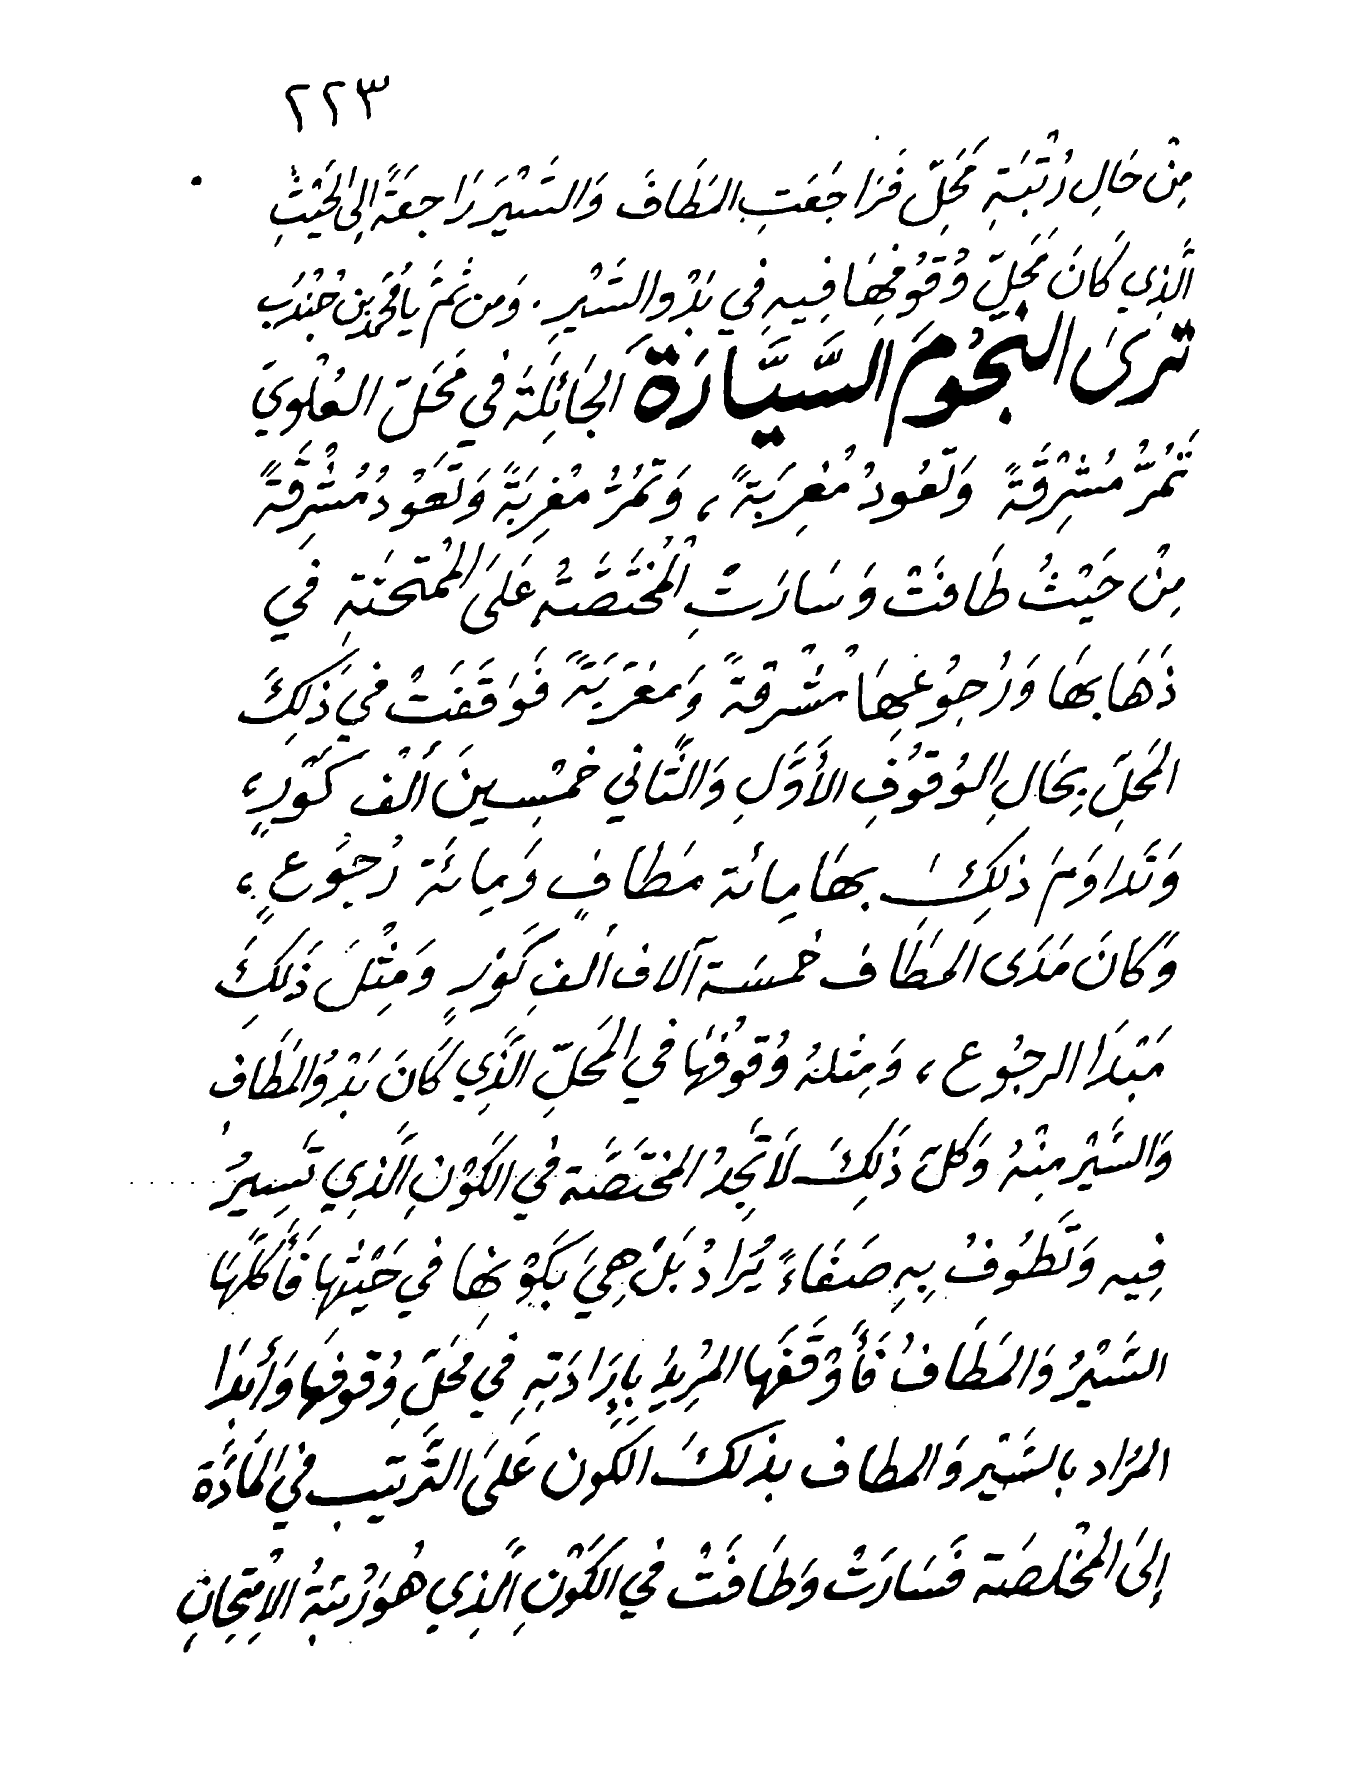 ٢٢٣
مِنْ حَالِ رُتْبَةِ مَحَلِّ فَرَاجَعَتِ المَطَافَ وَالسَّيْرَ رَاجِعَةً إِلَى الحَيْثِ
الَّذِي كَانَ مَحَلِّ وُقُوفِهَا فِيهِ فِي بَدْوِ السَّيْرِ. وَمِن ثَمَّ يَا مُحَمَّد بن جُنْدُب
تَرَىٰ النُّجُومَ السَّيَّارَةَ الجَائِلَةَ فِي مَحَلِّ العُلْوِيّ
تَمُرُّ مُشْرِقَةً وَتَعُودُ مُغْرِبَةً، وَتَمُرُّ مُغْرِبَةً وَتَعُودُ مُشْرِقَةً
مِنْ حَيْثُ طَافَتْ وَسَارَتِ المُخْتَصَّةُ عَلَى المُمْتَحَنَةِ فِي
ذَهَابِهَا وَرُجُوعِهَا مُشْرِقَةً وَمُغْرِبَةً فَوَقَفَتْ فِي ذَلِكَ
المَحَلِّ بِحَالِ الوُقُوفِ الأَوَّلِ وَالثَّانِي خَمْسِينَ أَلْف كَوْرٍ،
وَتَدَاوَمَ ذَلِكَ بِهَا مِائَة مَطَافٍ وَمِائَة رُجُوعٍ،
وَكَانَ مَدَى المَطَاف خَمْسَة آلاف أَلفِ كَوْرٍ وَمِثْلَ ذَلِكَ
مَبْدَا الرجُوع، وَمِثلهُ وُقُوفُهَا فِي المَحَلِّ الَّذِي كَانَ بَدْوُ المَطَافِ
وَالسَّيْر مِنْهُ وَكُلّ ذَلِكَ لَا تَجِدُ المخْتَصَّة فِي الكَوْنِ الَّذِي تَسِيرُ
فِيه وَتَطُوفُ بِهِ صَفَاءً يُرَادُ بَلْ هِيَ بِكَوْنِهَا فِي حَيْثِهَا فَأَكَلَّهَا
السَّيْرُ وَالمَطَافُ فَأَوْقَفَهَا المُرِيدُ بِإِرَادَتِهِ فِي مَحَلِّ وُقوفِهَا وَأَبدَا
المُرَاد بِالسَّيْر وَالمطاف بذلكَ الكَون عَلَى التَّرتيب فِي المَادَّة
إِلَى المُخْلصَة فَسَارَتْ وَطَافَتْ فِي الكَوْنِ الَّذِي هُوَ رُتبَةُ الامْتِحَانِ